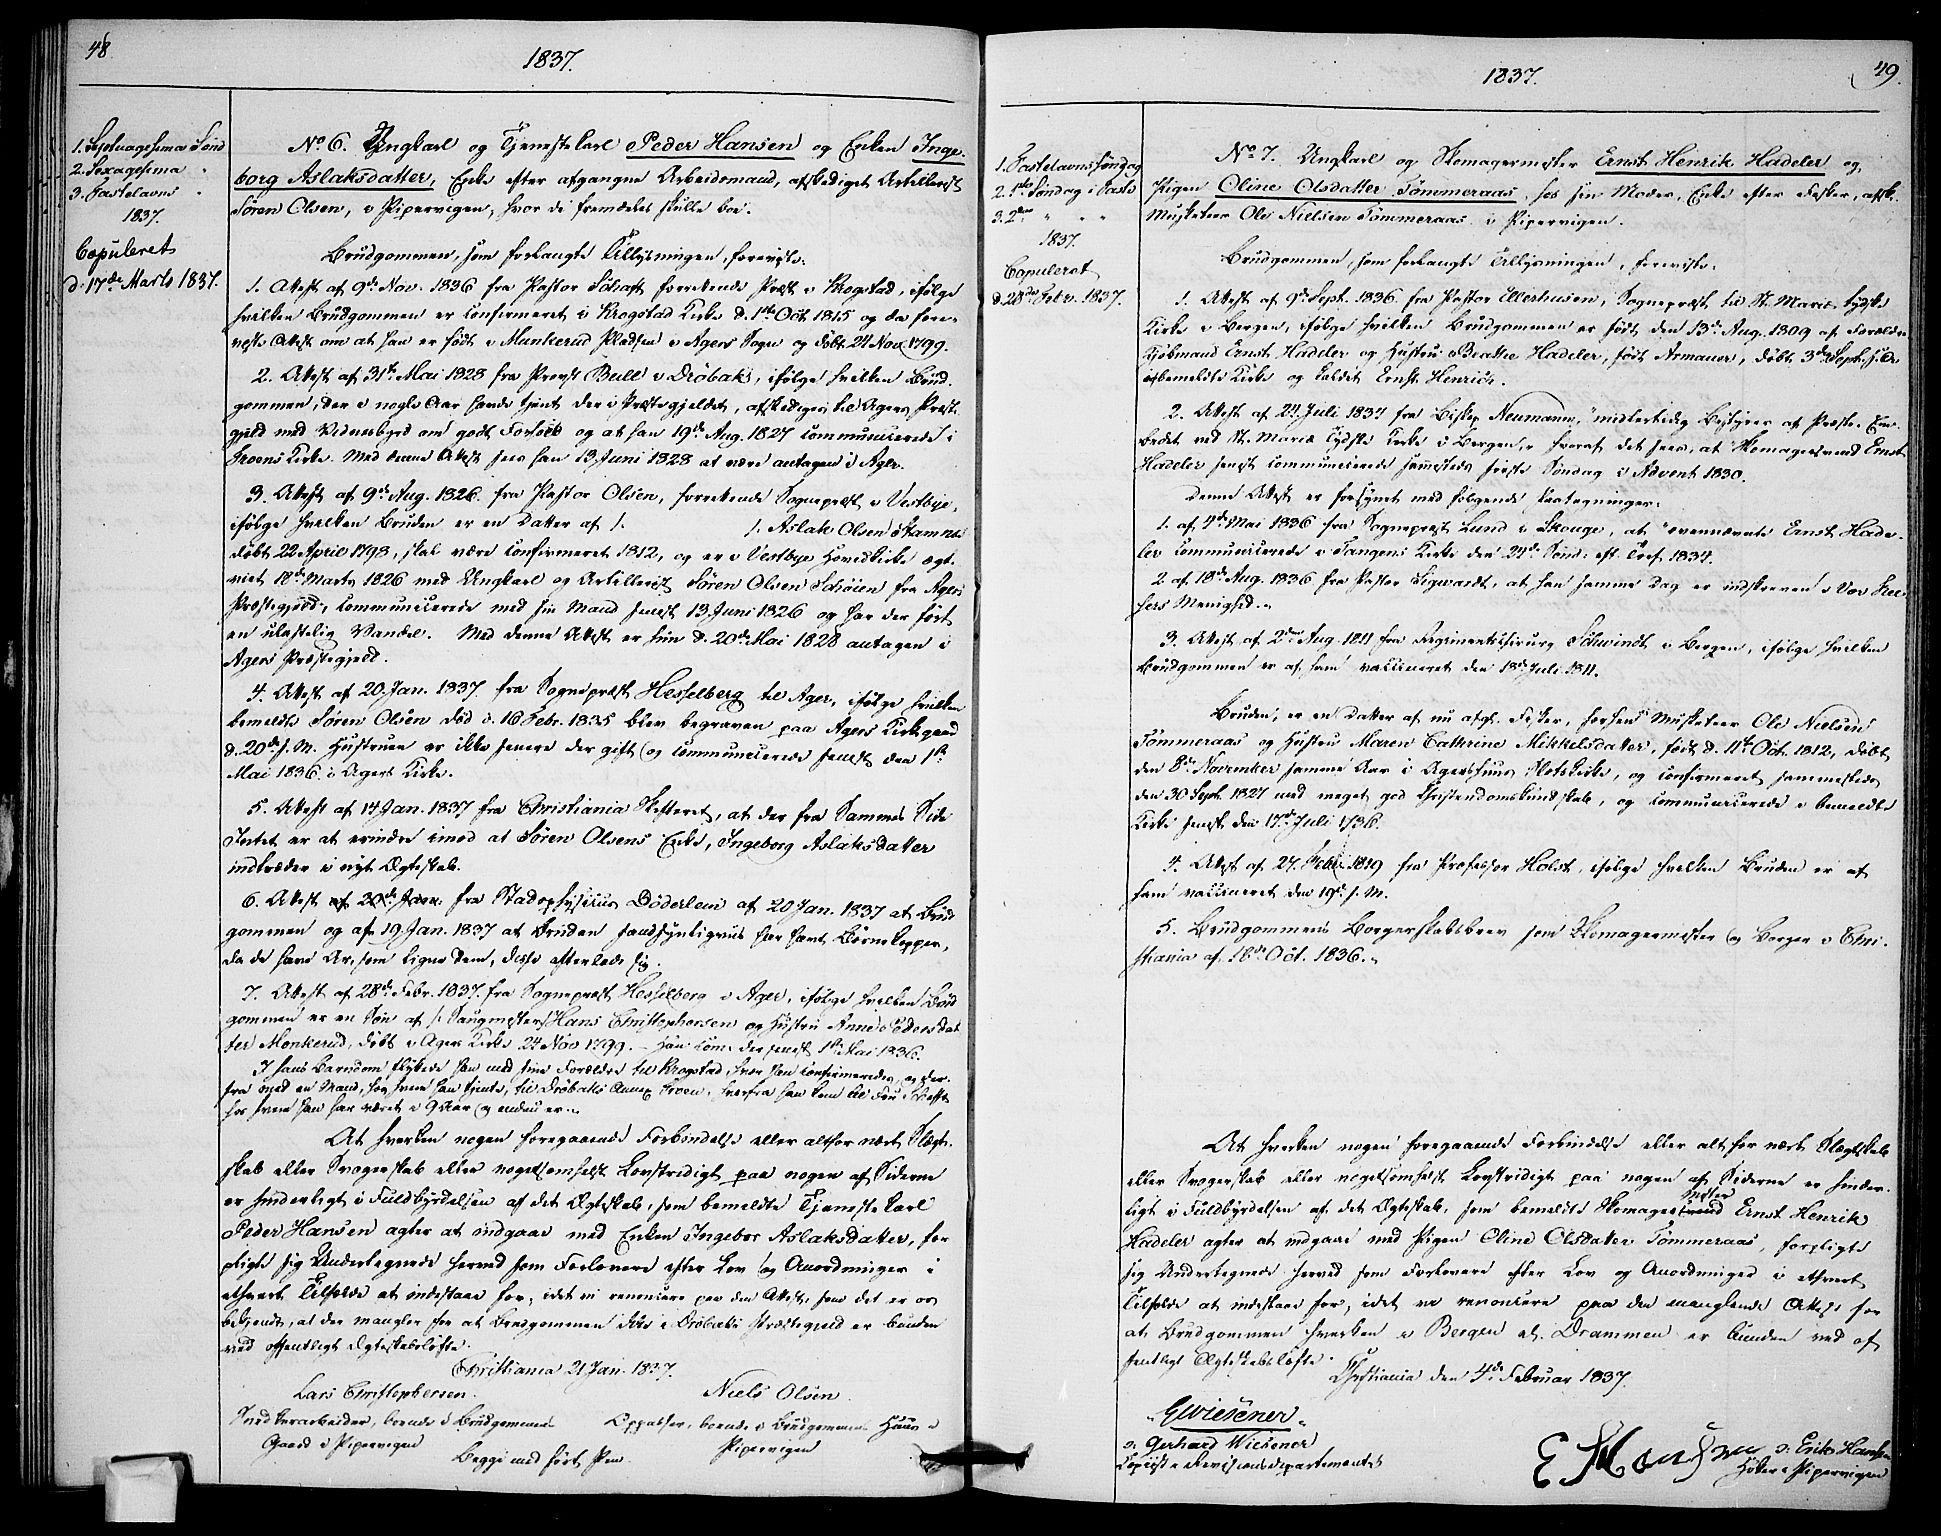 48.
1837.
1. Septuagesima Sønd
2. Sexagesima "
3. Fastelavns "
1837.
Copuleret
d. 17de Marts 1837.
No 6. Ungkarl og Tjenestekarl Peder Hansen og Enken Inge-
borg Aslaksdatter, Enke efter afgangne Arbeidsmand, afskediget Artillerist
Søren Olsen, i Pipervigen, hvor de fremdeles skulle boe.
Brudgommen, som forlangte Tillysningen, foreviste:
1. Attest af 9de Nov. 1836 fra Pastor Schaft forrettende Præst i Krogstad, ifølge
hvilken Brudgommen er confirmeret i Krogstad Kirke d. 1ste Oct 1815 og da fore-
viste Attest om at han er født i Munkerud Pladsen i Agers Sogn og døbt 24 Nov. 1799.
2. Attest af 31te Mai 1828 fra Provst Bull i Drøbak, ifølge hvilken Brud-
gommen, der i nogle Aar havde tjent der i Præstegjeldet, afskediges til Agers Præste-
gjeld med Vidnesbyrd om godt Forhold og at han 19de Aug. 1827 communicerede i
Froens Kirke. Med denne Attest sees han 13 Juni 1828 at være antagen i Ager.
3. Attest af 9de Aug. 1826 fra Pastor Olsen, forrettende Sognepræst i Vestbye,
ifølge hvilken Bruden er en Datter af /: :/ Aslak Olsen Kamnes
døbt 22 April 1793, skal være confirmeret 1812, og er i Vestbye Hovedkirke ægte-
viet 18de Marts 1826 med Ungkarl og Artillerist Søren Olsen Schøien fra Agers
Præstegjeld, communicerede med sin Mand senest 13 Juni 1826 og har der ført
en ulastelig Vandel. Med denne Attest er hun d. 20de Mai 1828 antagen i
Agers Præstegjeld.
4. Attest af 20 Jan. 1837 fra Sognepræst Hesselberg til Ager, ifølge hvilken
bemeldte Søren Olsen død d. 16 Febr. 1835 blev begraven paa Agers Kirkegaard
d. 20de s. M. Hustruen er ikke senere der gift og communicerede senest den 1ste
Mai 1836 i Agers Kirke.
5. Attest af 14 Jan. 1837 fra Christiania Skifteret, at der fra Sammes Side
Intet er at erindre imod at Søren Olsens Enke, Ingeborg Aslaksdatter
indtræder i nyt Ægteskab.
6. Attest af 20de Jan. fra Stadsphysicus Døderlein af 20 Jan. 1837 at Brud-
gommen og af 19 Jan. 1837 at Bruden sandsynligviis har havt Børnekopper,
da de have Ar, som ligne dem, disse efterlade sig.
7. Attest af 28de Febr. 1837 fra Sognepræst Hesselberg i Ager, ifølge hvilken Brud-
gommen er en Søn af /: Saugmester :/ Hans Christophersen og Hustru Anne Pedersdat-
ter Monkerud, døbt i Agers Kirke 24 Nov 1799. – Han com. der senest 1ste Mai 1836.
I hans Barndom flyttede han med sine Forældre til Krogstad, hvor han confirmeredes, og der-
fra med en Mand, hos hvem han tjente, til Drøbaks Annex Froen, hvorfra han kom til Fru Schafft
hos hvem han har været i 9 Aar og endnu er.
At hverken nogen foregaaende Forbindelse eller altfor nært Slægt-
skab eller Svogerskab eller nogetsomhelst Lovstridigt paa nogen af Siderne
er hinderligt i Fuldbyrdelsen af det Ægteskab, som bemeldte Tjenestekarl
Peder Hansen agter at indgaae med Enken Ingebor Aslaksdatter, for-
pligte sig Undertegnede herved som Forlovere efter Lov og Anordninger i
ethvert Tilfælde at indestaae for, idet vi renoncere paa den Attest, som det er os
bekjendt, at der mangler for at Brudgommen ikke i Drøbaks Præstegjeld er bunden
ved offentligt Ægteskabsløfte.
Christiania 21 Jan. 1837.
Lars Christophersen. Niels Olsen.
Snedkerarbeider, boende i Brudgommens Oppasser, boende i Brudgommens Huus i
Gaard i Pipervigen Pipervigen
Begge med ført Pen.
1837.
49.
1. Fastelavns Søndag
2. 1ste Søndag i Faste
3. 2den " " "
1837.
Copuleret
d. 28de Febr. 1837.
No 7. Ungkarl og Skomagermester Ernst Henrik Hadeler og
Pigen Oline Olsdatter Tømmeraas, hos sin Moder, Enke efter Fisker, afsk.
Musketeer Ole Nielsen Tømmeraas i Pipervigen.
Brudgommen, som forlangte Tillysningen, foreviste:
1. Attest af 9de Sept. 1836 fra Pastor Ellerhusen, Sognepræst til St. Mariæ tydske
Kirke i Bergen, ifølge hvilken Brudgommen er født den 13de Aug. 1809 af Forældre
Kjøbmand Ernst Hadeler og Hustru Beatte Hadeler, født Armauer, døbt 3de Sept. s. A.
i bemeldte Kirke og kaldet Ernst Henrich.
2. Attest af 24 Juli 1834 fra Biskop Neumann, "midlertidig Bestyrer af Præste-Em-
bedet ved St. Mariæ Tydske Kirke i Bergen," hvoraf det sees, at Skomagersvend Ernst
Hadeler senest communicerede sammesteds første Søndag i Advent 1830.
Denne Attest er forsynet med følgende Paategninger:
1. af 4de Mai 1836 fra Sognepræst Lund i Skouge, at "ovennævnte Ernst Hade-
ler communicerede i Tangens Kirke den 24de Sønd. eft. Tref. 1834.
2. af 18de Aug. 1836 fra Pastor Sigwardt, at han samme Dag er indskreven i Vor Frel-
sers Menighed."
3. Attest af 2den Aug. 1811 fra Regimentschirurg Schwindt i Bergen, ifølge hvilken
Brudgommen er af ham vaccineret den 18de Juli 1811.
Bruden, er en Datter af nu afg. Fisker, forhen Musketeer Ole Nielsen
Tømmeraas og Hustru Maren Cathrine Mikkelsdatter, født d. 11te Oct. 1812, døbt
den 8de November samme Aar i Agershuus Slotskirke, og confirmeret sammesteds
den 30 Sept. 1827 med meget god Christendomskundskab, og communicerede i bemeldte
Kirke senest den 17de Juli 1836.
4. Attest af 27 Febr. 1819 fra Professor Holst, ifølge hvilken Bruden er af
ham vaccineret den 19de s. M.
5. Brudgommens Borgerskabsbrev som Skomagermester og Borger i Chri-
stiania af 18de Oct. 1836.
At hverken nogen foregaaende Forbindelse eller alt for nært Slægtskab
eller Svogerskab eller nogetsomhelst Lovstridigt paa nogen af Siderne er hinder-
ligt i Fuldbyrdelsen af det Ægteskab, som bemeldte Skomagersvend mester Ernst Henrik
Hadeler agter at indgaae med Pigen Oline Olsdatter Tømmeraas, forpligte
sig Undertegnede herved som Forlovere efter Lov og Anordninger i ethvert
Tilfælde at indestaae for, idet vi renoncere paa den manglende Attest for
at Brudgommen hverken i Bergen el. Drammen er bunden ved of-
fentligt Ægteskabsløfte.
Christiania den 4de Februar 1837.
"GWiesener"
o: Gerhard Wiesener
Copiist i Revisionsdepartementet
E Hansen o: Erik Hansen
Høker i Pipervigen